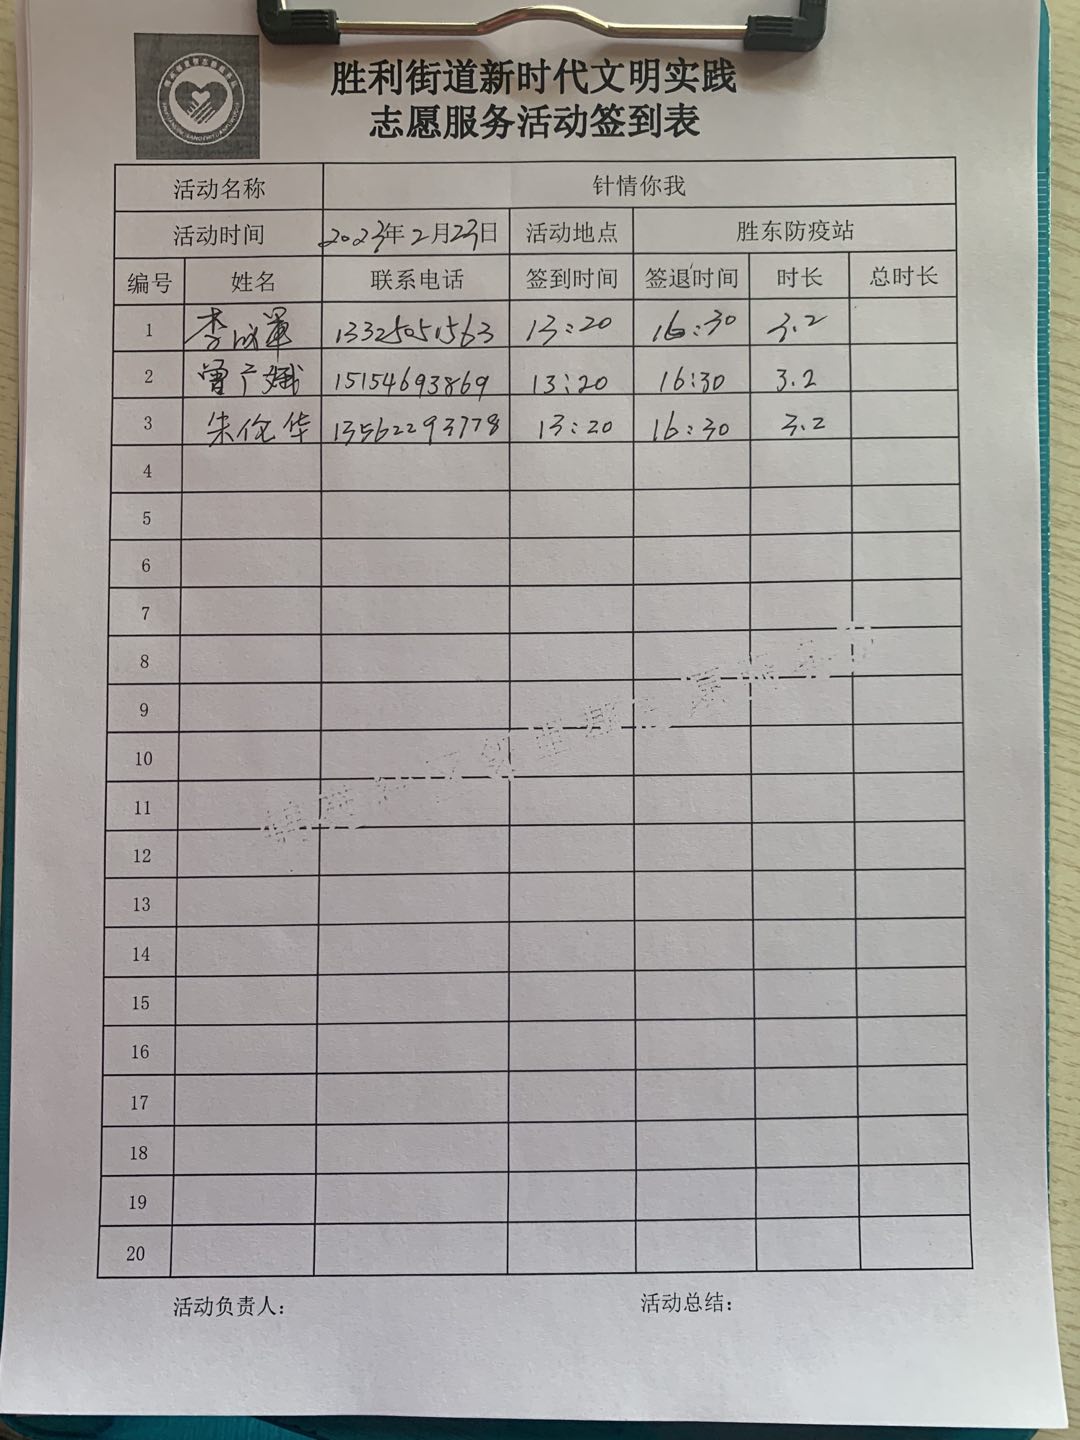 胜利街道新时代文明实践
志愿服务活动签到表
活动名称 针情你我
活动时间 2023年2月23日 活动地点 胜东防疫站
编号 姓名 联系电话 签到时间 签退时间 时长 总时长
1 李成军 13325051563 13:20 16:30 3.2
2 曾广娥 15154693869 13:20 16:30 3.2
3 朱伦华 13562293778 13:20 16:30 3.2
4
5
6
7
8
9
10
11
12
13
14
15
16
17
18
19
20
活动负责人： 活动总结：